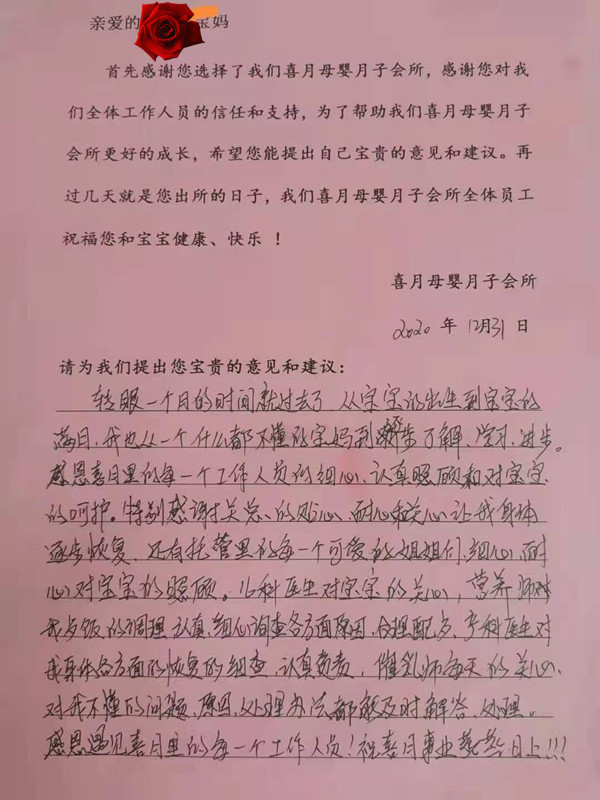 亲爱的 宝妈
首先感谢您选择了我们喜月母婴月子会所，感谢您对我
们全体工作人员的信任和支持，为了帮助我们喜月母婴月子
会所更好的成长，希望您能提出自己宝贵的意见和建议。再
过几天就是您出所的日子，我们喜月母婴月子会所全体员工
祝福您和宝宝健康、快乐 ！
喜月母婴月子会所
2020 年 12月31 日
请为我们提出您宝贵的意见和建议：
转眼一个月的时间就过去了，从宝宝的出生到宝宝的
满月，我也从一个什么都不懂的宝妈到逐步了解、学习、进步。
感恩喜月里的每一个工作人员的细心、认真照顾和对宝宝
的呵护。特别感谢关总、的贴心、耐心和关心让我身体
逐步恢复，还有托管里的每一个可爱的姐姐们、细心、耐
心对宝宝的照顾。儿科医生对宝宝的关心，营养师对
我月饭的调理、认真、细心询查各方面原因、合理配月、产科医生对
我身体各方面的恢复的细查、认真负责，催乳师每天的关心、
对我不懂的问题、原因、处理办法都能及时解答、处理。
感恩遇见喜月里的每一个工作人员！祝喜月事业蒸蒸日上！！！